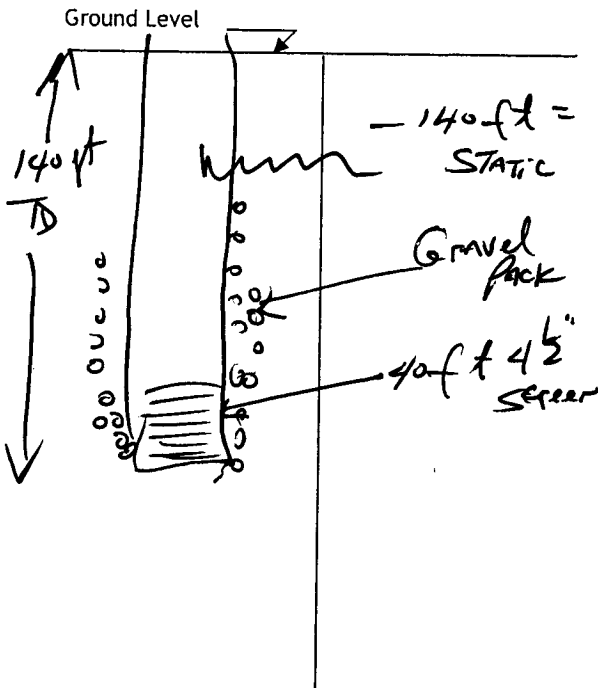 Ground Level
140 ft
TD
- 140 ft =
STATIC
Gravel
Pack
40 ft 4 1/2"
Screen